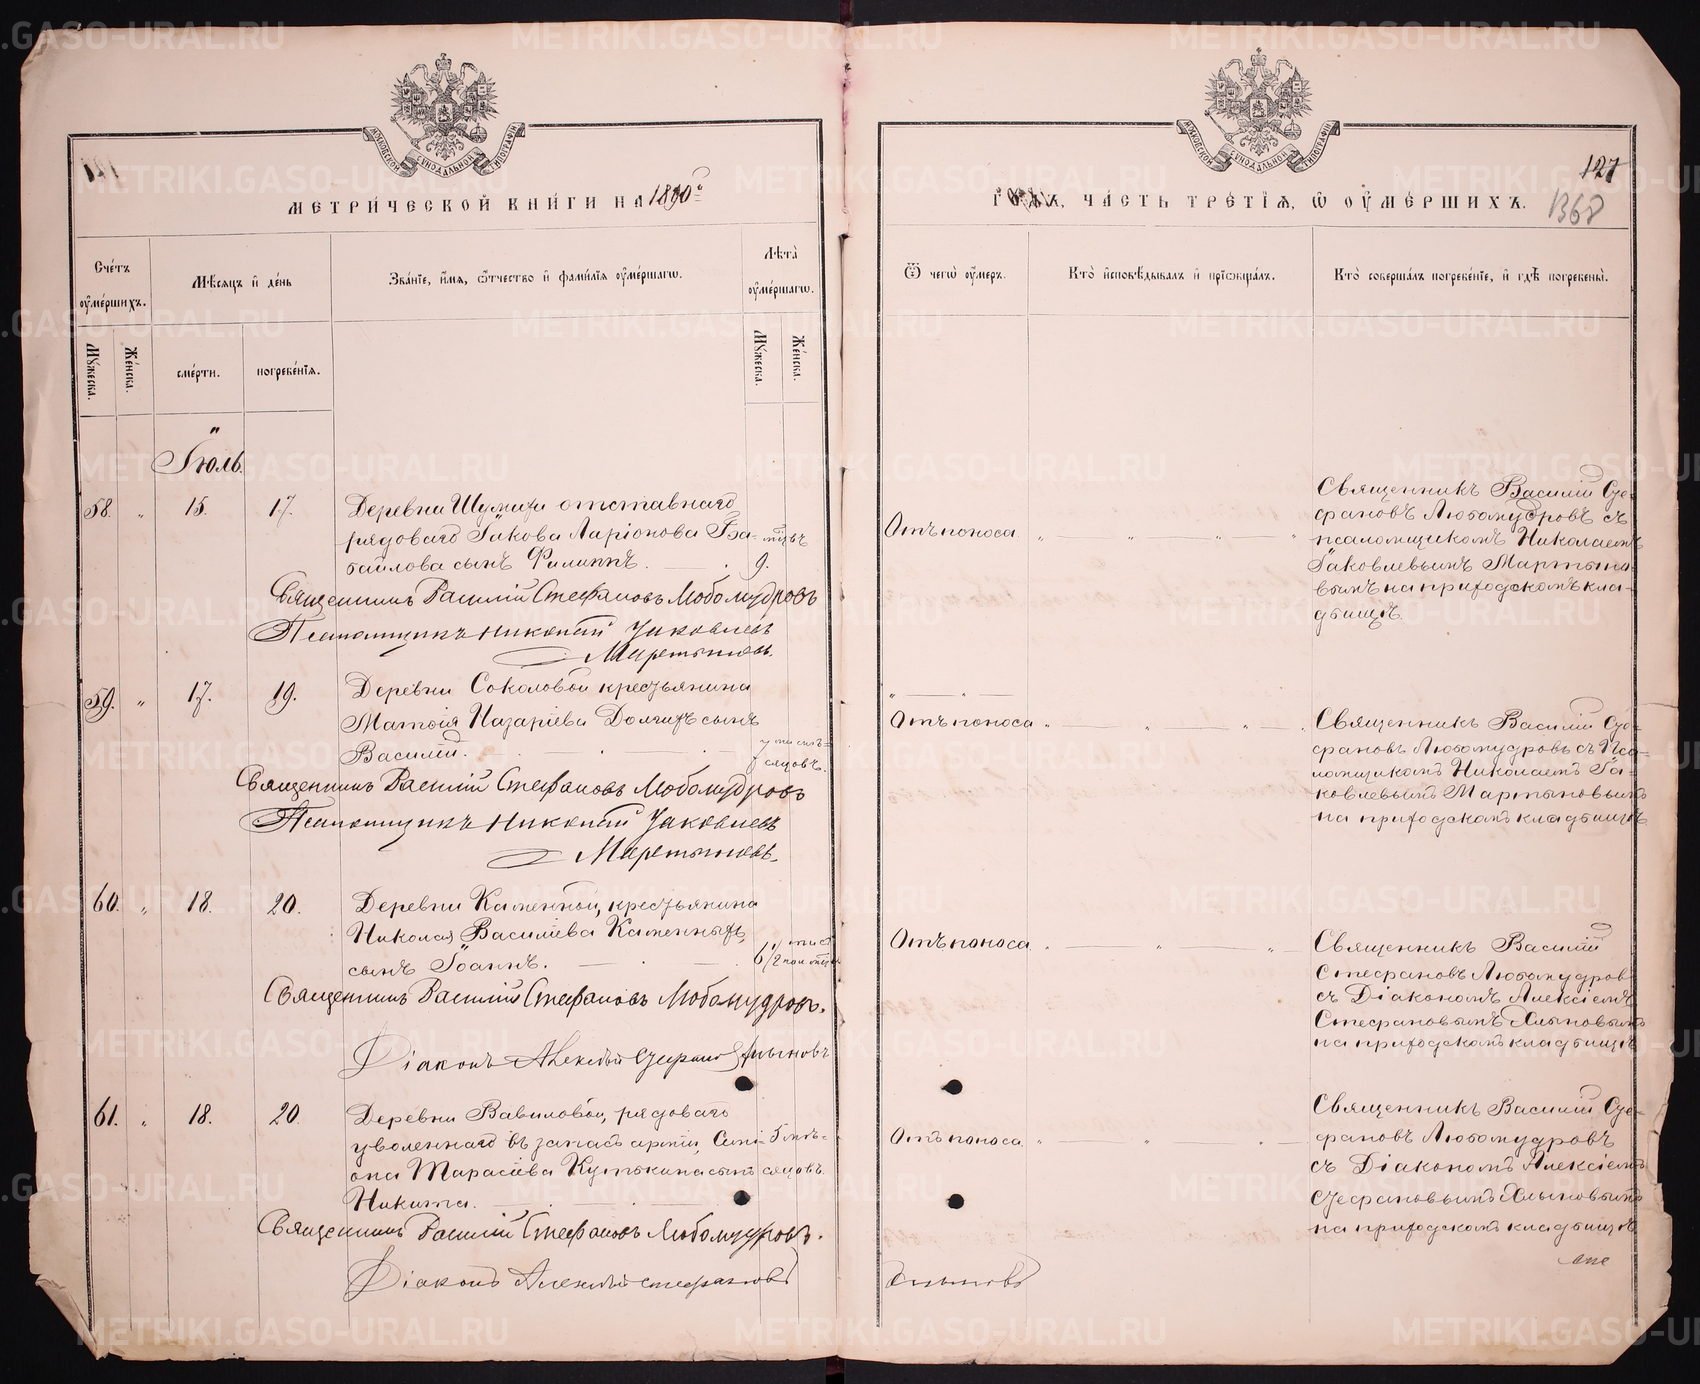 МОСКОВСКОЙ СѴНОДАЛЬНОЙ ТИПОГРАФІИ
МЕТРИЧЕСКОЙ КНИГИ НА 1890
Счетъ оумершихъ.
Мѣсяцъ и день
Званіе, имя, ѿчество и фамилія оумершагѡ.
Лѣта оумершагѡ.
Мужеска.
Женска.
смерти.
погребенія.
Мужеска.
Женска.
Іюль.
58. " 15. 17. Деревни отставнаго
рядоваго Іакова Ларіонова Ба-
баилова сынъ Филиппъ. 9.
Священникъ Василій Стефановъ Любомудровъ
Псаломщикъ Николай Яковлевъ
Мартыновъ.
59. " 17. 19. Деревни Соколовой крестьянина
Матѳія Назаріева Долгихъ сынъ
Василій. сяцовъ.
Священникъ Василій Стефановъ Любомудровъ
Псаломщикъ Николай Яковлевъ
Мартыновъ.
60. " 18. 20. Деревни Каменной, крестьянина
Николая Василіева Каменныхъ
сынъ Іоаннъ.
Священникъ Василій Стефановъ Любомудровъ.
Діаконъ Алексѣй Стефановъ Хлыновъ
61. " 18. 20. Деревни Вавиловой, рядоваго
уволеннаго въ запасъ арміи, Симе- 5 мѣ-
она Тарасіева Кутькина сынъ сяцовъ.
Никита.
Священникъ Василій Стефановъ Любомудровъ.
Діаконъ Алексѣй Стефановъ
МОСКОВСКОЙ СѴНОДАЛЬНОЙ ТИПОГРАФІИ
127
1368
ГОДЪ, ЧАСТЬ ТРЕТІЯ, Ѿ ОУМЕРШИХЪ.
Ѿ чегѡ оумеръ.
Кто исповѣдывалъ и пріѡбщалъ.
Кто совершалъ погребеніе, и гдѣ погребены.
Отъ поноса
Священникъ Василій Сте-
фановъ Любомудровъ съ
псаломщикомъ Николаемъ
Іаковлевымъ Мартыно-
вымъ на приходскомъ кла-
дбищѣ.
Отъ поноса
Священникъ Василій Сте-
фановъ Любомудровъ съ Пса-
ломщикомъ Николаемъ Іа-
ковлевымъ Мартыновымъ
на приходскомъ кладбищѣ
Отъ поноса
Священникъ Василій
Стефановъ Любомудровъ
съ Діакономъ Алексіемъ
Стефановымъ Хлыновымъ
на приходскомъ кладбищѣ
Отъ поноса
Священникъ Василій Сте-
фановъ Любомудровъ
съ Діакономъ Алексіемъ
Стефановымъ Хлыновымъ
на приходскомъ кладбищѣ
Хлыновъ
METRIKI.GASO-URAL.RU